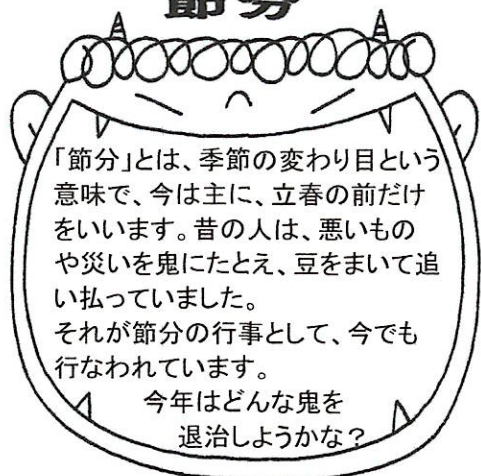 節分
「節分」とは、季節の変わり目という
意味で、今は主に、立春の前だけ
をいいます。昔の人は、悪いもの
や災いを鬼にたとえ、豆をまいて追
い払っていました。
それが節分の行事として、今でも
行なわれています。
今年はどんな鬼を
退治しようかな？